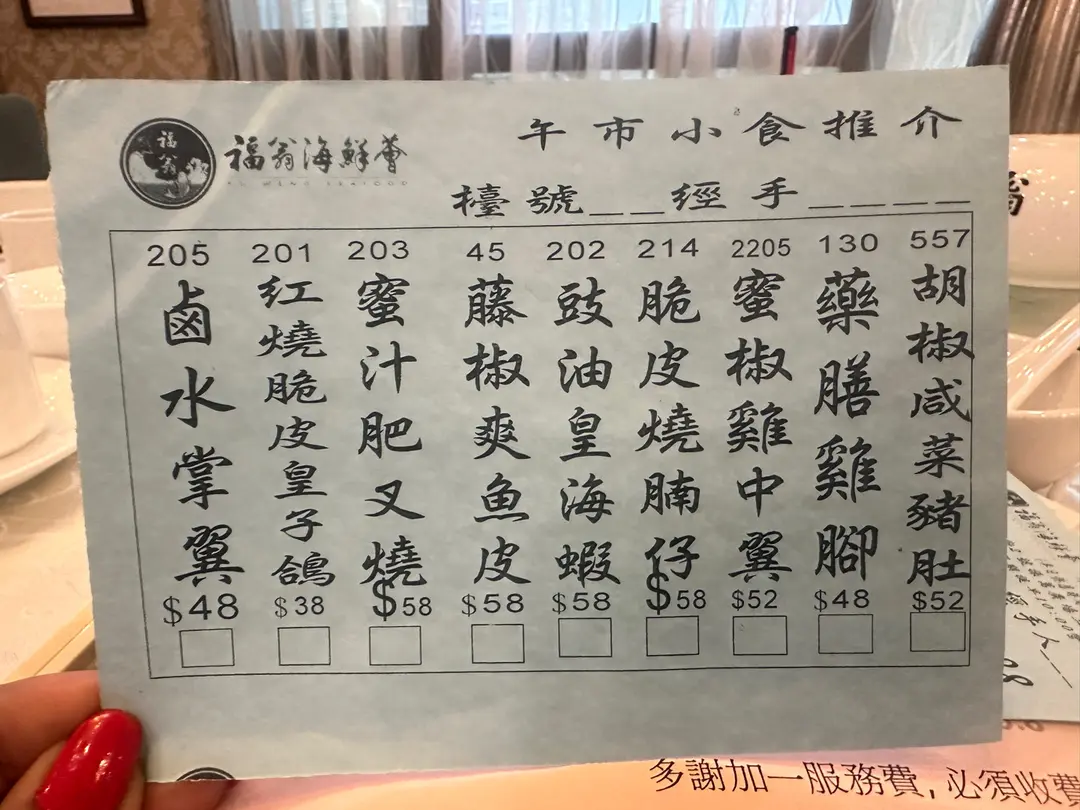 福翁
福翁海鮮薈
午市小食推介
檯號__經手____
557
胡椒咸菜豬肚
$52
130
藥膳雞腳
$48
2205
蜜椒雞中翼
$52
214
脆皮燒腩仔
$58
202
豉油皇海蝦
$58
45
藤椒爽魚皮
$58
203
蜜汁肥叉燒
$58
201
紅燒脆皮皇子鴿
$38
205
鹵水掌翼
$48
多謝加一服務費,必須收費